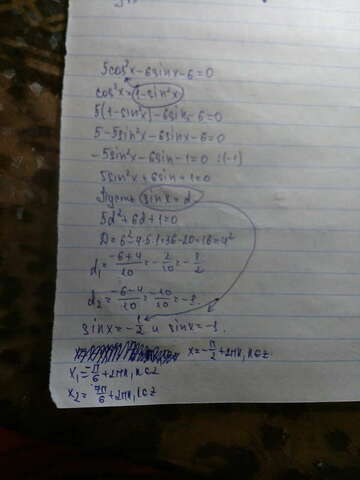 5cos²x-6sinx-6=0
cos²x=1-sin²x
5(1-sin²x)-6sinx-6=0
5-5sin²x-6sinx-6=0
-5sin²x-6sin-1=0 :(-1)
5sin²x+6sin+1=0
Пусть sinx=d
5d²+6d+1=0
D=6²-4·5·1=36-20=16=4²
d₁=-6+4/10=-2/10=-1/2
d₂=-6-4/10=-10/10=-1.
sinx=-1/2 и sinx=-1.
x=-π/2+2πk, k∈z.
x₁=-π/6+2πk, k∈z
x₂=7π/6+2πk, k∈z